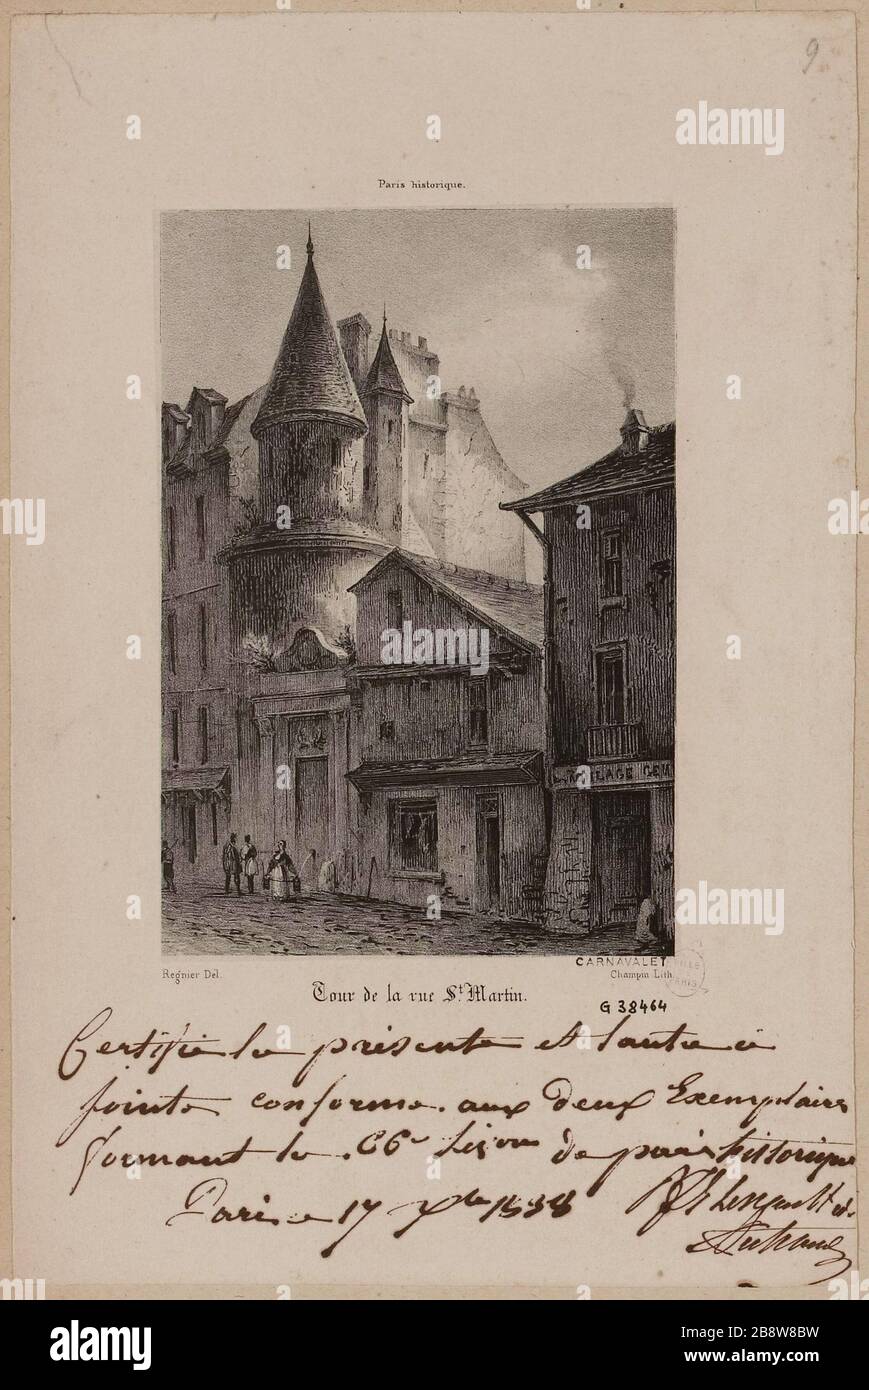 9
Paris historique.
ROULAGE GEN
Regnier Del.
CARNAVALET
Champin Lith.
VILLE
PARIS
Tour de la rue St. Martin.
G 38464
Certifié la présente et l'autre ci
jointe conforme aux deux Exemplaires
formant la 66e Liçon de paris historique
Paris ce 17 7bre 1838
alamy
Image ID: 2B8W8BW
www.alamy.com